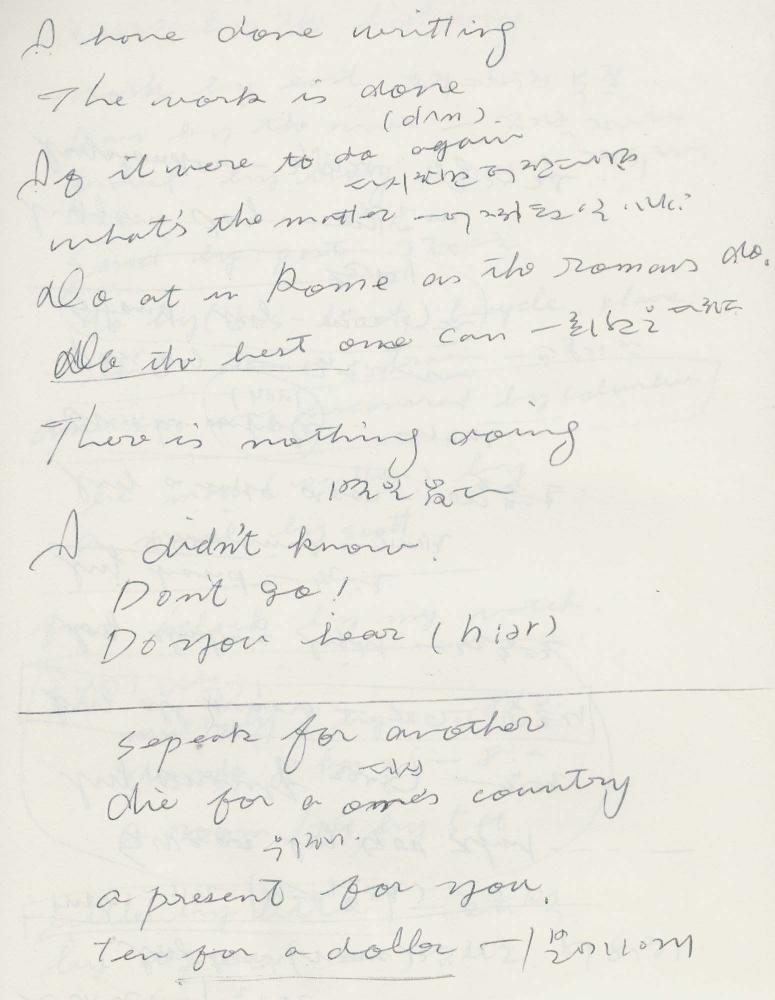 I have done writting
The work is done
(dʌn).
If it were to do again
다시 한다면
what's the matter — 어
Do at in Rome as the Romans do.
Do the best one can — 최선을
There is nothing doing
I didn't know.
Don't go!
Do you hear (hiər)
sepeak for another
대신
die for a one's country
위해서.
a present for you.
Ten for a dollar — 1불에 10개